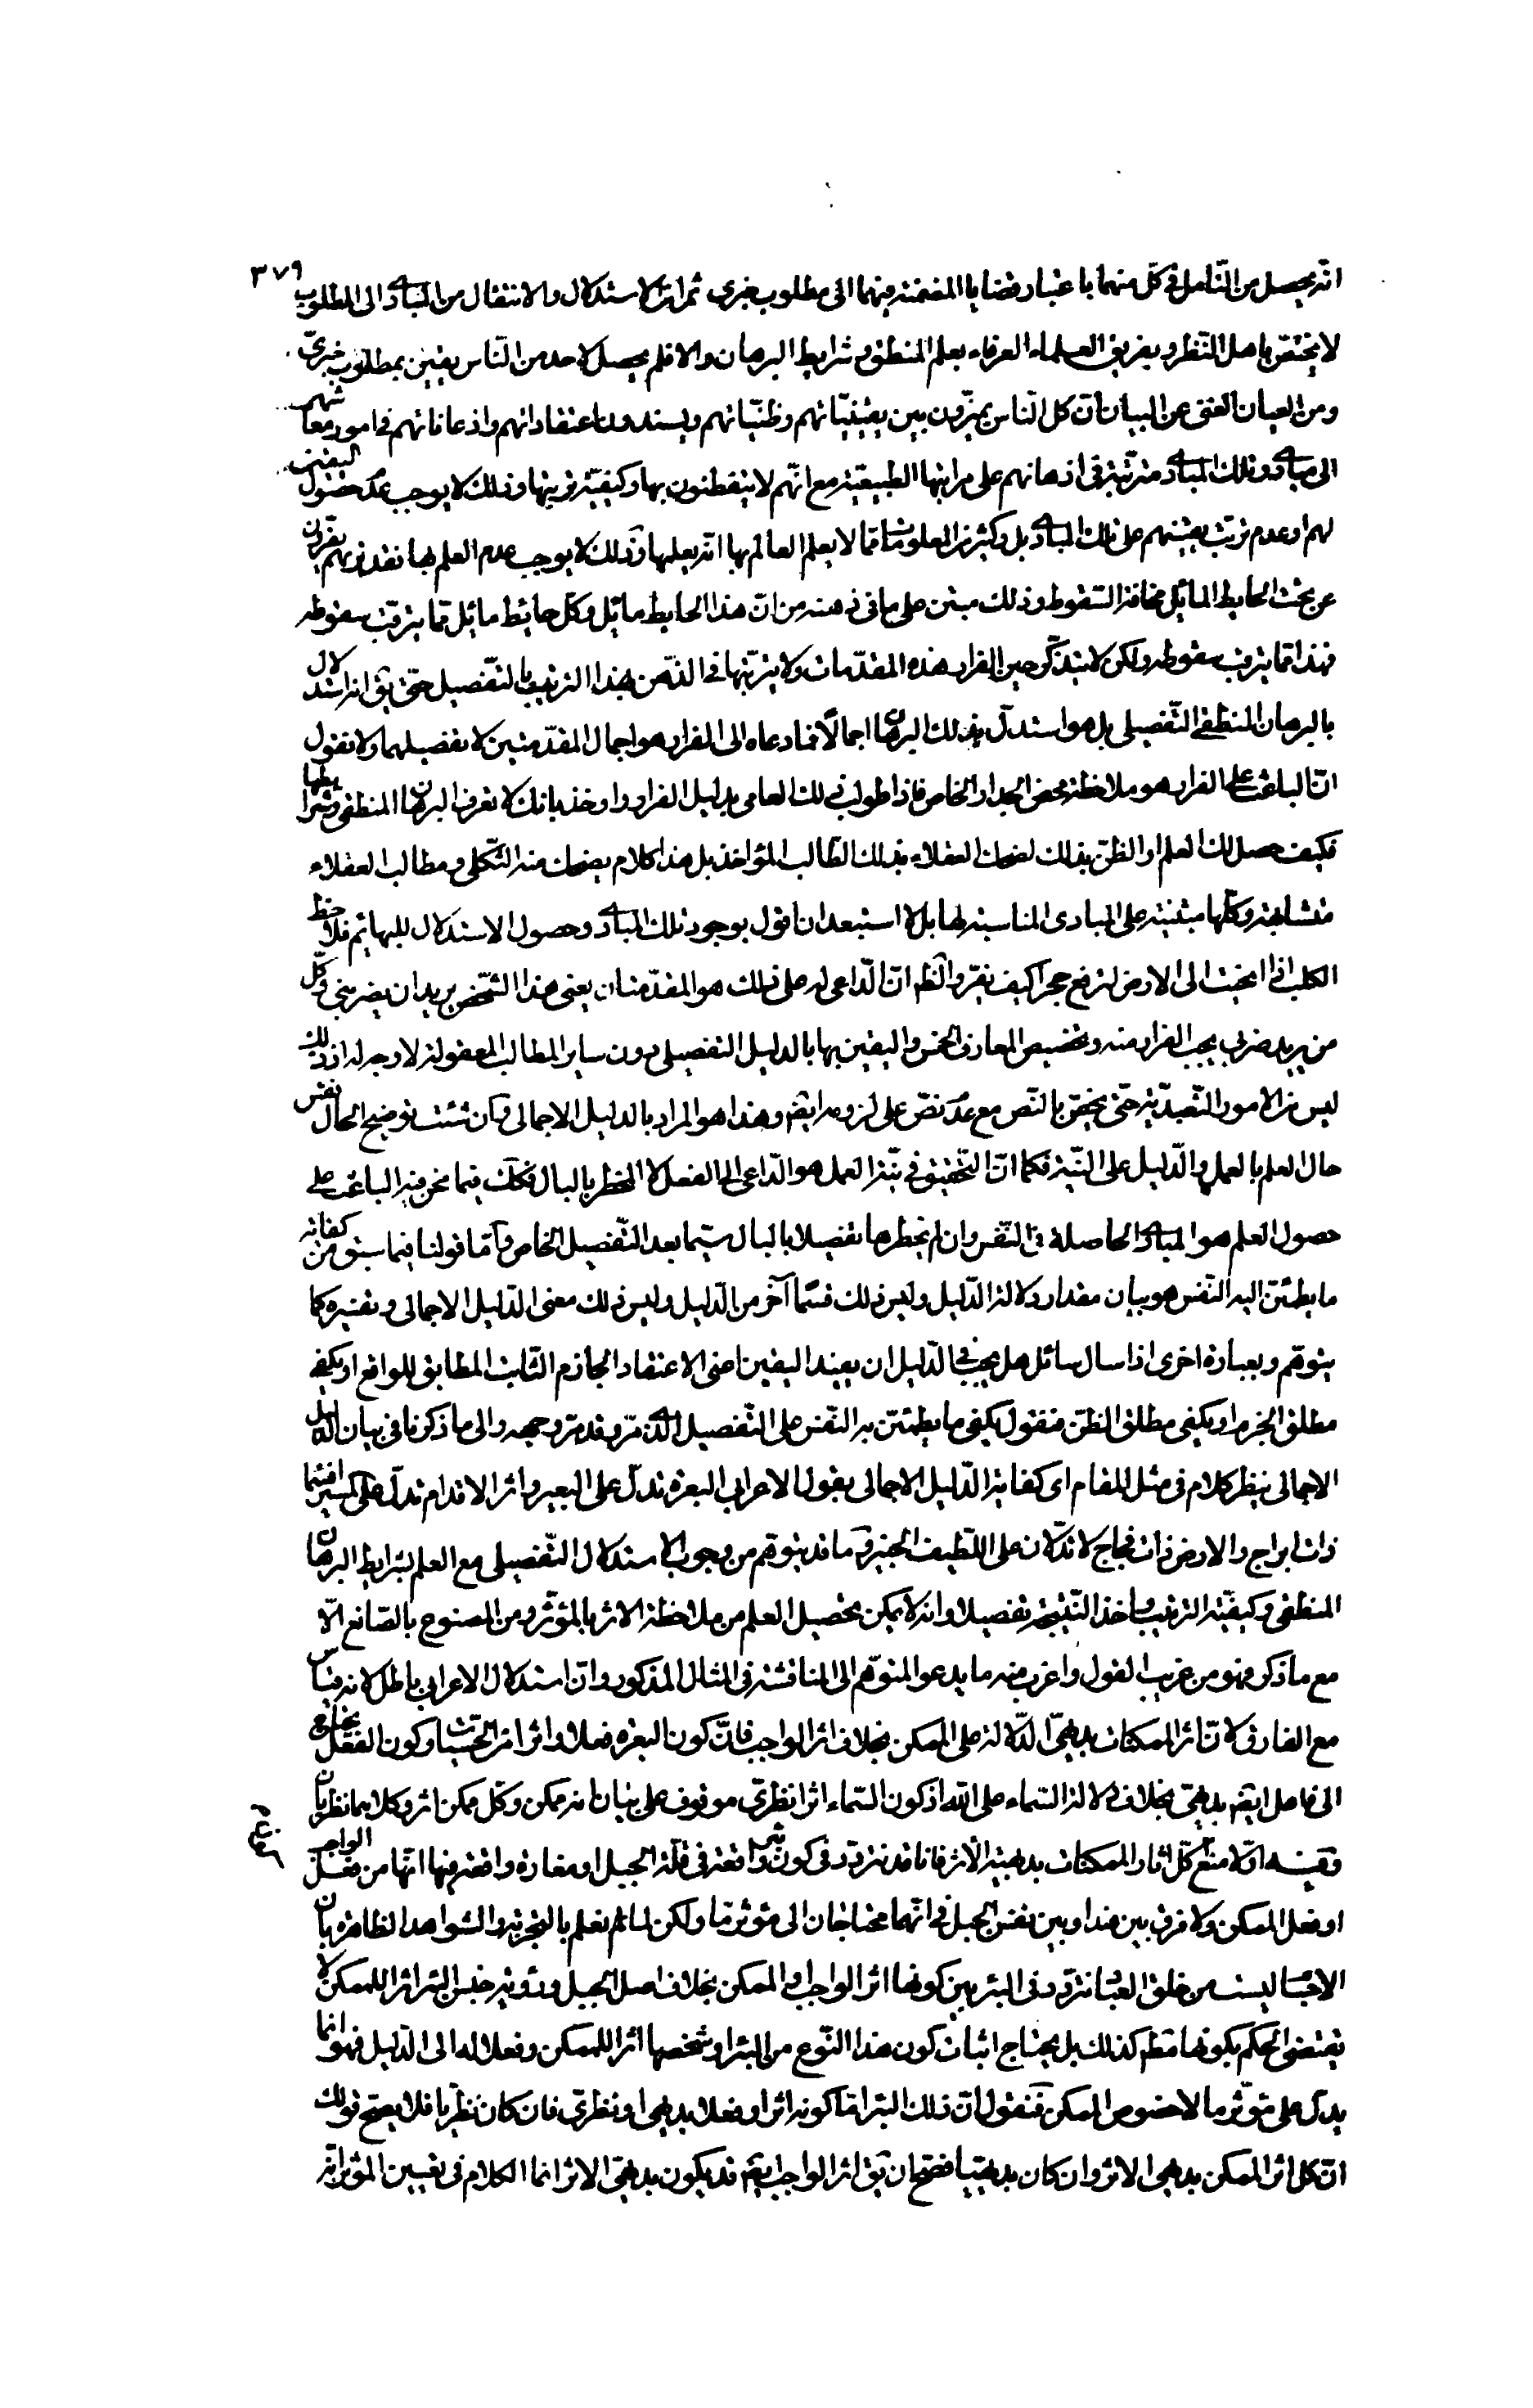 ٣٧٩
انّه يحصل من التّامل فى كلّ منهما باعتبار قضايا المضمنة فيهما الى مطلوب خبرى ثم انّ الاستدلال والانتقال من المبادى الى المطلوب
لا يختصّ باهل النّظر وبفريق العلماء العرفاء بعلم المنطق وشرايط البرهان والا فلم يحصل لاحد من النّاس يقين بمطلوب خبرىّ
ومن العيان الغنى عن البيان انّ كلّ النّاس يميّزون بين يقينيّاتهم وظنّيّاتهم ويسندون اعتقاداتهم واذعاناتهم فى امور معاشهم
الى مبادى وتلك المبادى مترتّبة فى اذهانهم على مراتبها الطبيعيّة مع انّهم لا يتفطنون بها وكيفيّة ترتيبها وذلك لا يوجب عدم حصول اليقين
لهم او عدم ترتّب يقينهم على تلك المبادى بل وكثير من المعلومات ممّا لا يعلم العالم بها انّه يعلمها وذلك لا يوجب عدم العلم بها فقد تريهم يفرّون
عن تحت الحايط المائل مخافة السّقوط وذلك مبتن على ما فى ذهنه من انّ هذا الحايط مائل وكلّ حائط مائل ممّا يترقّب سقوطه
فهذا ممّا يترقب سقوطه ولكن لا يتذكّر حين الفرار هذه المقدّمات ولا يترتّبها فى الذّهن بهذا الترتيب بالتّفصيل حتّى يق انه استدلال
بالبرهان المنطقى التّفصيلى بل هو استدلّ بذلك البرهان اجمالًا فما دعاه الى الفرار هو اجمال المقدّمتين لا تفصيلهما ولا نقول
انّ الباعث على الفرار هو ملاحظة محض الجدار الخاص فاذا طولب ذلك العامى بدليل الفرار واوخذ بانك لا تعرف البرهان المنطقى وشرايطها
فكيف حصل لك العلم او الظنّ بذلك لضحك العقلاء بذلك الطّالب المؤاخذ بل هذا كلام يضحك منه الثّكلى ومطالب العقلاء
متشابهة وكلّها مبتنية على المبادى المناسبة لها بل لا استبعد ان اقول بوجود تلك المبادى وحصول الاستدلال للبهائم فلاحظ
الكلب اذا انحنيت الى الارض لترفع حجرا كيف يفرّ والظ انّ الدّاعى له على ذلك هو المقدّمتان يعنى هذا الشّخص يريد ان يضربنى وكلّ
من يريد ضربى يجب الفرار منه وتخصيص المعارف الخمس واليقين بها بالدليل التفصيلى دون ساير المطالب المعقولة لا وجه له اذ ذلك
ليس من الامور التّعبديّة حتّى يختصّ بالنّص مع عدم نصّ على لزومه ايضا وهذا هو المراد بالدليل الاجمالى وان شئت توضيح الحال فقس
حال العلم بالعمل والدّليل على النيّة فكما انّ التّحقيق فى نيّة العمل هو الدّاعى الى الفعل لا المخطر بالبال فكك فيما نحن فيه الباعث على
حصول العلم هو المبادى الحاصلة فى النّفس وان لم يخطرها تفصيلا بالبال سيّما بعد التّفصيل الخاص وامّا قولنا فيما سبق من كفاية
ما يطمئنّ اليه النّفس هو بيان مقدار دلالة الدّليل وليس ذلك قسمًا آخر من الدّليل وليس ذلك معنى الدّليل الاجمالى وتفسيره كما
يتوهّم وبعبارة اخرى اذا سال سائل هل يجب فى الدّليل ان يفيد اليقين اعنى الاعتقاد الجازم الثّابت المطابق للواقع او يكفى
مطلق الجزم او يكفى مطلق الظنّ فنقول يكفى ما يطمئنّ به النّفس على التّفصيل الّذى مرّ وقد مرّ وجهه والى ما ذكرنا فى بيان الدّليل
الاجمالى ينظر كلام فى مثل المقام اى كفاية الدّليل الاجمالى بقول الاعرابى البعرة تدلّ على البعير واثر الاقدام تدلّ على المسير افسماء
ذات ابراج والارض ذات فجاج لا تدلّان على اللّطيف الخبير وما قد يتوهّم من وجوب الاستدلال التّفصيلى مع العلم بشرايط البرهان
المنطقى وكيفيّة الترتيب واخذ النّتيجة تفصيلا وانه لا يمكن تحصيل العلم من ملاحظة الاثر بالمؤثّر ومن المصنوع بالصّانع الّا
مع ما ذكر فهو من غريب القول واغرب منه ما يدعو المتوهّم الى المناقشة فى المثال المذكور وانّ استدلال الاعرابى باطل لانه قياس
مع الفارق لانّ اثر الممكنات بديهىّ الدّلالة على الممكن بخلاف اثر الواجب فانّ كون البعرة فعلا واثرا من الحسّيات وكون الفعل يحتاج
الى فاعل ايضا بديهىّ بخلاف دلالة السّماء على اللّه اذ كون السّماء اثرا نظرىّ موقوف على بيان انه ممكن وكلّ ممكن اثر وكلاهما نظريان
وفيه اوّلا منع كلّ اثار الممكنات بديهيّة الأثر فانا قد نتردّد فى كون شئ واقعة فى قلّة الجبل او مغارة واقعة فيها انّها من فعل الواجب
او فعل الممكن ولا فرق بين هذا وبين نفس الجبل فى انّهما محتاجان الى مؤثر ما ولكن لما لم نعلم بالتجربة والشواهد الظاهرة بان
الاجسام ليست من خلق العباد نتردّد فى البئر بين كونها اثر الواجب او الممكن بخلاف اصل الجبل ورؤية جنس البئر اثرا للممكن لا
يقتضى الحكم بكونها مطلقا كذلك بل يحتاج اثبات كون هذا النّوع من البئر او شخصها اثرا للممكن وفعلا له الى الدّليل فهو انما
يدلّ على مؤثّر ما لا خصوص الممكن فنقول انّ ذلك البئر امّا كونه اثرا وفعلا بديهى او نظرىّ فان كان نظريّا فلا يصحّ قولك
انّ كل اثر الممكن بديهى الاثر وان كان بديهيّا فصحّ ان يق اثر الواجب ايضا قد يكون بديهىّ الاثر انما الكلام فى تعيين المؤثر انّه